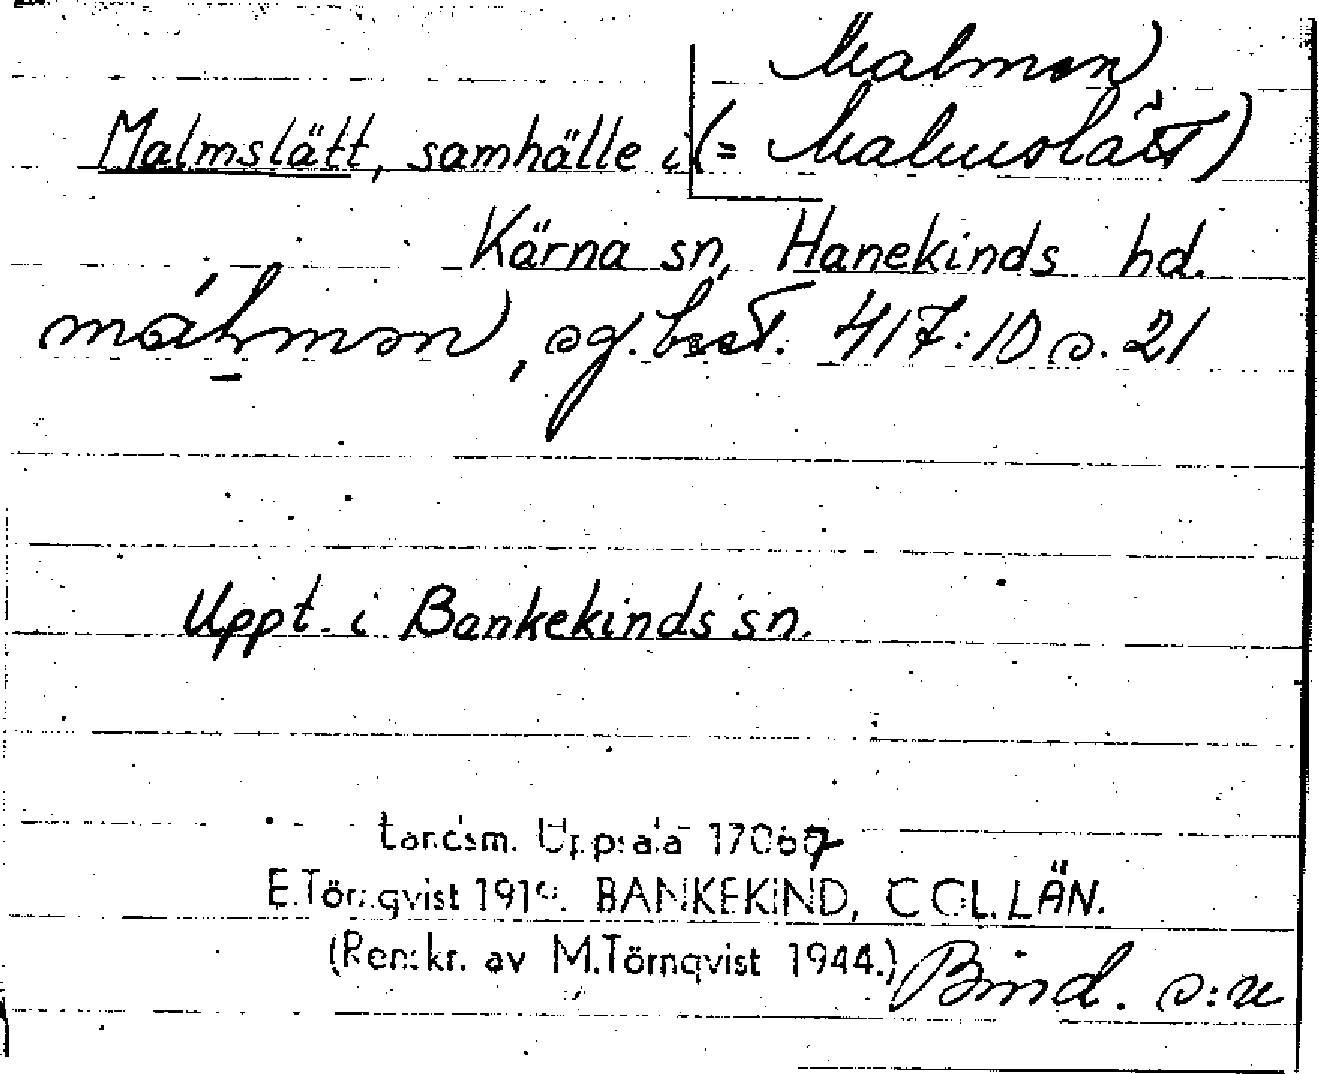 Malmen
Malmslätt, samhälle i (= Malmslätt)
Kärna sn, Hanekinds hd.
málmən, og. best. 417:10 s. 21
Uppt. i Bankekinds sn.
Landsm. Uppsala 17067
E.Törnqvist 1919. BANKEKIND, ÖGL. LÄN.
(Renskr. av M.Törnqvist 1944.) Bind. s:n